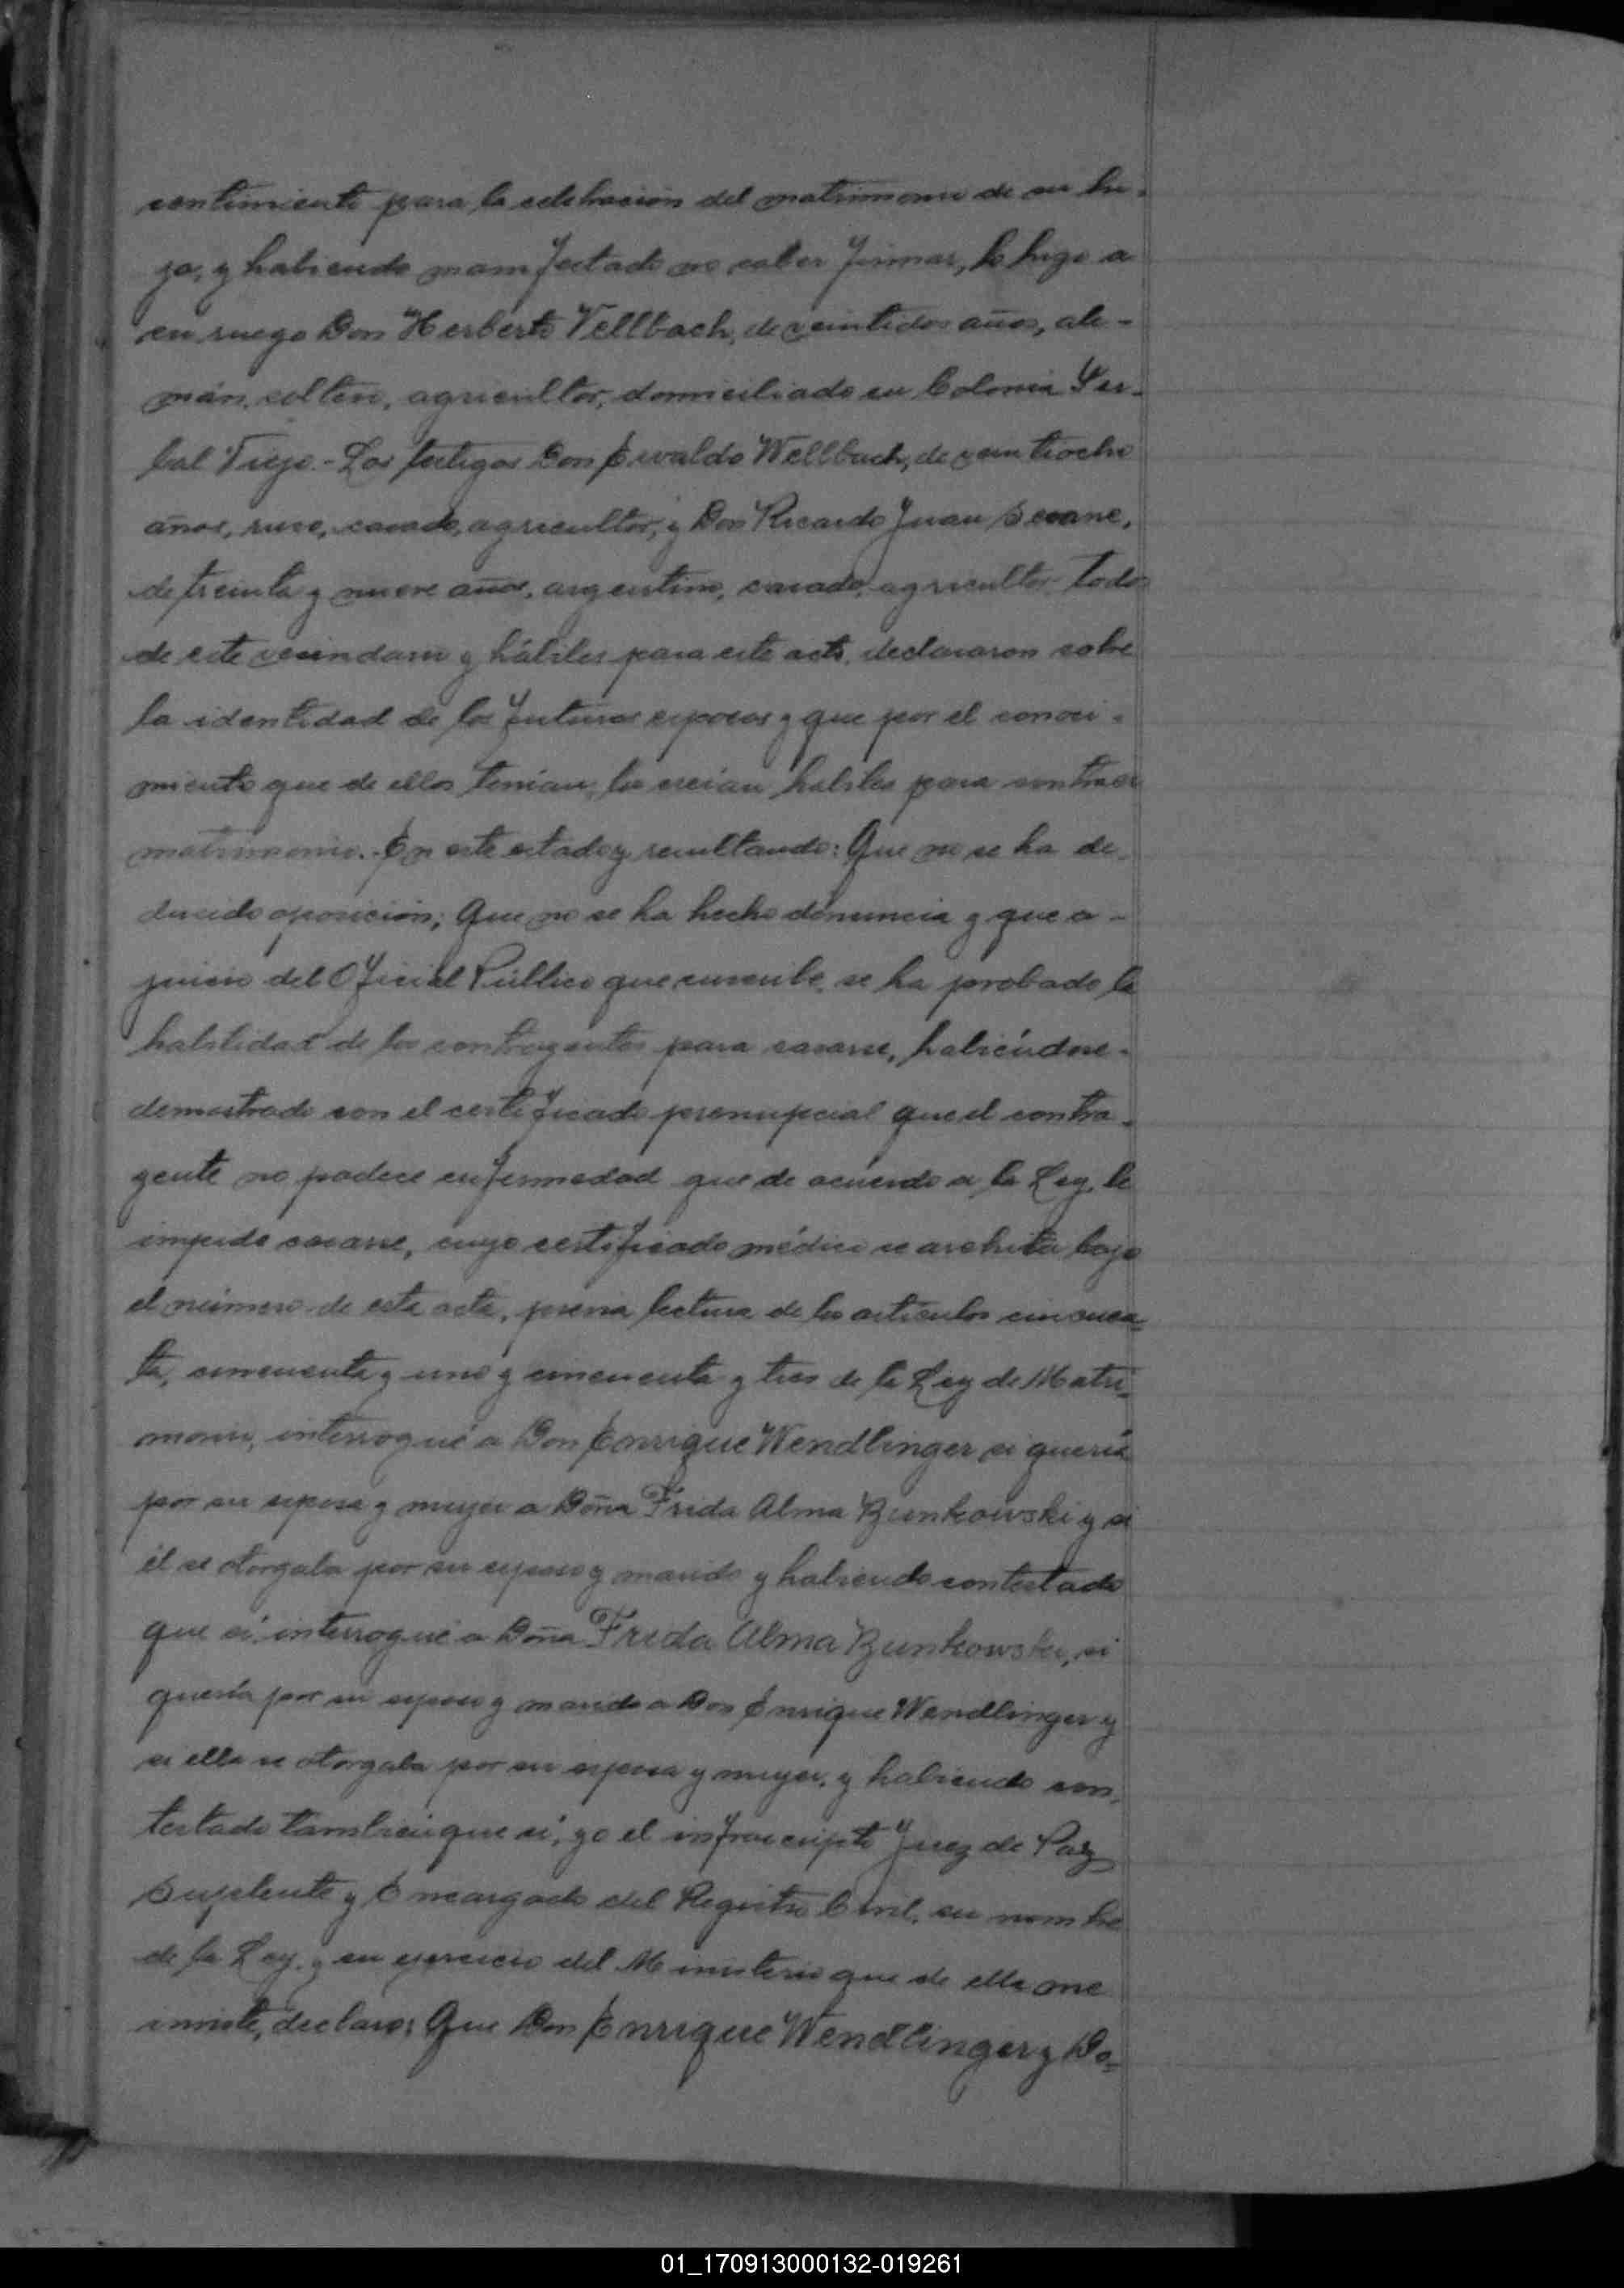 sentimiento para la celebración del matrimonio de su hi-
ja, y habiendo manifestado no saber firmar, lo hizo a
su ruego Don Herberto Vellbach, de veintidos años, ale-
mán, soltero, agricultor, domiciliado en Colonia Yer-
bal Viejo.- Los testigos Don Ewaldo Wellbach, de veintiocho
años, ruso, casado, agricultor, y Don Ricardo Juan Seoane,
de treinta y nueve años, argentino, casado, agricultor, todos
de este vecindario y hábiles para este acto, declararon sobre
la identidad de los futuros esposos y que por el conoci-
miento que de ellos tenían, los creían hábiles para contraer
matrimonio.- En este estado y resultando: Que no se ha de-
ducido oposición; Que no se ha hecho denuncia y que a-
juicio del Oficial Público que suscribe, se ha probado la
habilidad de los contrayentes para casarse, habiéndose-
demostrado con el certificado prenupcial que el contra-
yente no padece enfermedad que de acuerdo a la Ley, le
impida casarse, cuyo certificado médico se archiva bajo
el número de esta acta, previa lectura de los artículos cincuen-
ta, cincuenta y uno y cincuenta y tres de la Ley de Matri-
monio, interrogué a Don Enrique Wendlinger si quería
por su esposa y mujer a Doña Frida Alma Bunkowski y si
él se otorgaba por su esposo y marido y habiendo contestado
que sí, interrogué a Doña Frida Alma Bunkowski, si
quería por su esposo y marido a Don Enrique Wendlinger y
si ella se otorgaba por su esposa y mujer, y habiendo con-
testado también que sí, yo el infrascripto Juez de Paz
Suplente y Encargado del Registro Civil, en nombre
de la Ley, y en ejercicio del Ministerio que de ella me
inviste, declaro: Que Don Enrique Wendlinger y Do-
01_170913000132-019261